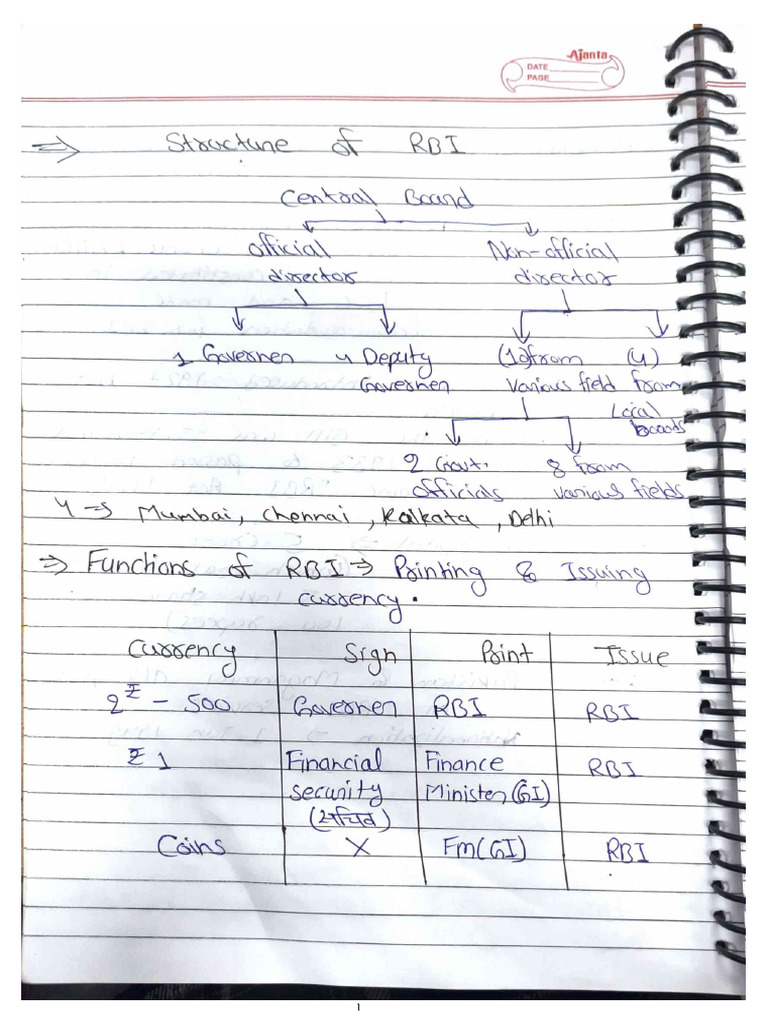 Ajanta
DATE
PAGE
⇒ Structure of RBI
Central Board
Official director Non-official director
1 Governer 4 Deputy Governer (10) from various field (4) from Local boards
2 Govt. officials 8 from various fields
4 → Mumbai, Chennai, Kolkata, Delhi
⇒ Functions of RBI ⇒ Printing & Issuing
currency.
Currency Sign Print Issue
2₹ - 500 Governer RBI RBI
₹ 1 Financial security (सचिव) Finance Minister (GI) RBI
Coins X Fm(GI) RBI
1